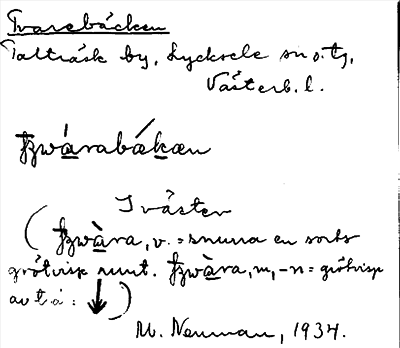 Tvarebäcken
Talträsk by, Lycksele sn o. tg,
Västerb. l.
ʈʂwárabǽkæn
I väster
(ʈʂwàra, v. = snurra en sorts
grötvisp runt. ʈʂwàra, m, -n = grötvisp
av trä: ↓ )
M. Neuman, 1934.